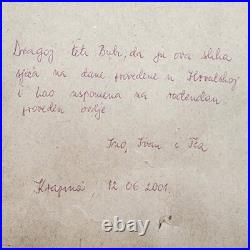 Dragoj teti Bubi, da ju ova slika
sjeća na dane provedene u Hrvatskoj
i kao uspomena na rođendan
proveden ovdje
Ino, Ivan i Tea
Krapina, 12 06 2001.